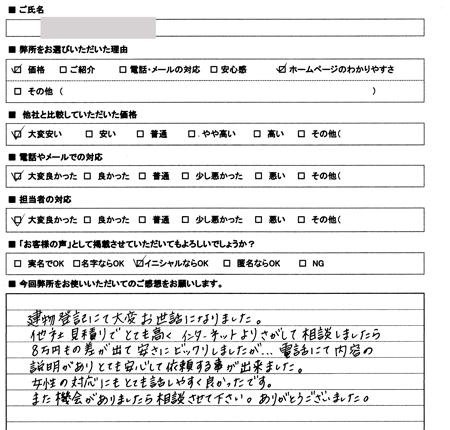 ■ ご氏名
■ 弊所をお選びいただいた理由
☑ 価格 □ご紹介 □電話・メールの対応 □安心感 ☑ホームページのわかりやすさ
□ その他 ( )
■ 他社と比較していただいた価格
☑ 大変安い □ 安い □ 普通 □ やや高い □ 高い □ その他(
■ 電話やメールでの対応
☑ 大変良かった □ 良かった □ 普通 □ 少し悪かった □ 悪い □ その他(
■ 担当者の対応
☑ 大変良かった □ 良かった □ 普通 □ 少し悪かった □ 悪い □ その他(
■ 「お客様の声」として掲載させていただいてもよろしいでしょうか?
□ 実名でOK □名字ならOK ☑イニシャルならOK □ 匿名ならOK □ NG
■ 今回弊所をお使いいただいてのご感想をお願いします。
建物登記にて大変お世話になりました。
他社見積りでとても高く インターネットよりさがして相談しましたら
8万円もの差が出て安さにビックリしましたが… 電話にて内容の
説明がありとても安心して依頼する事が出来ました。
女性の対応にもとても話しやすく良かったです。
また機会がありましたら相談させて下さい。ありがとうございました。